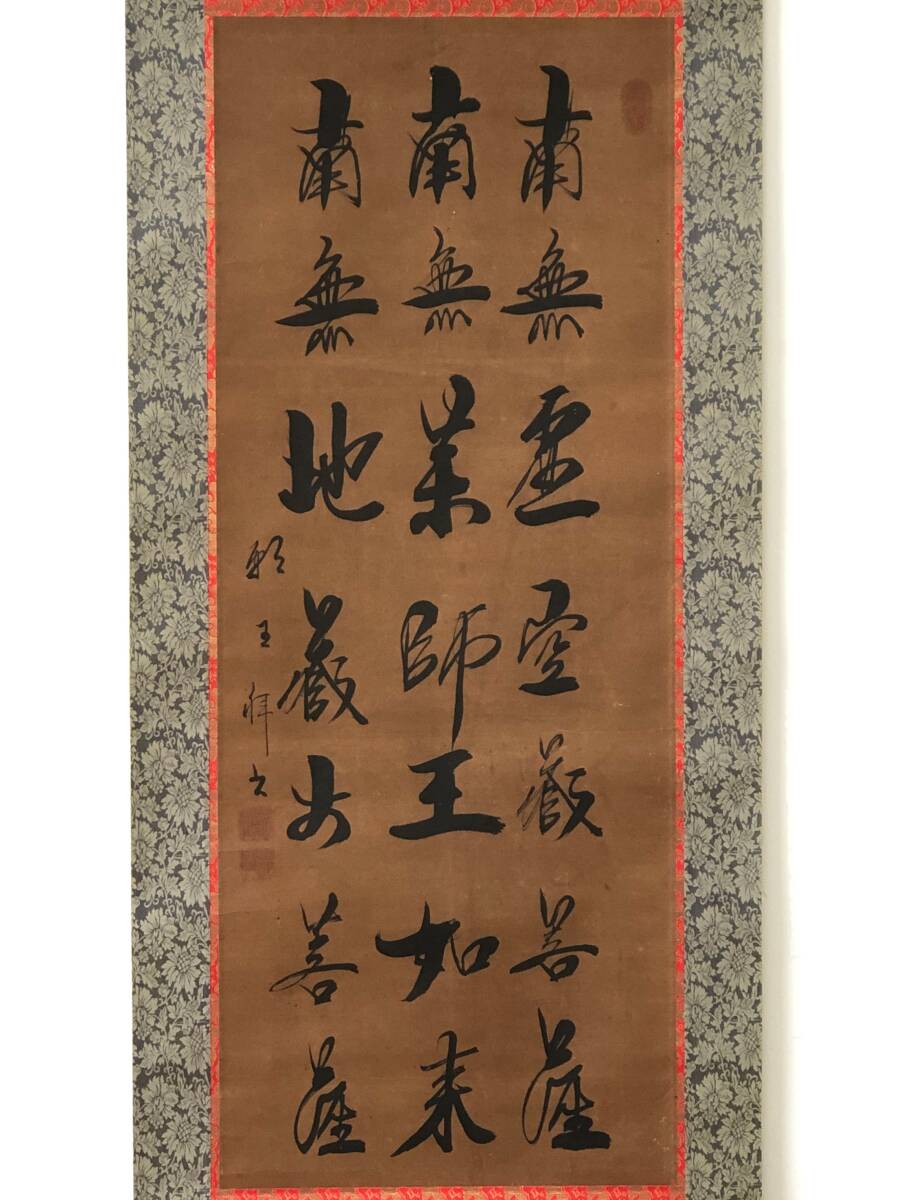 南無虚空藏菩薩
南無薬師王如来
南無地藏大菩薩
王拜書